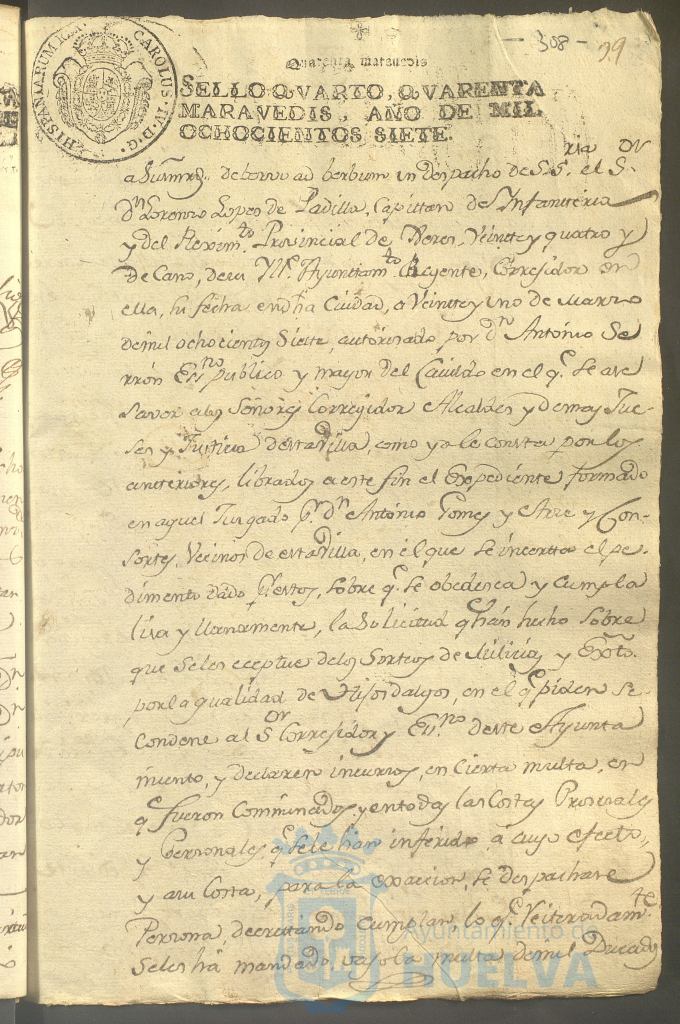 - 308 - 39
Quarenta marauedis
HISPANIARUM REX CAROLUS IV D. G.
SELLO QVARTO, QVARENTA
MARAVEDIS, AÑO DE MIL
OCHOCIENTOS SIETE.
de vervo ad berbum un despacho de S.Sria. el Sor
Dn Lorenzo Lopes de Padilla, Capittan de Infantteria
y del Reximto Provincial de Xeres, Veintey quatro y
Decano, de su Ylle Ayunttamto Rexente, Corresidor en
ella, su fecha en dha Ciudad, a Veintey uno de Marzo
demil ochocientos Siette, autorisado, por dn Antonio Se-
rrón Esno publico y mayor del Cavildo en el qe se ase
Saver a los Señores Corregidor Alcaldes y demas Jue-
ses y Justicia desta Villa, como ya le consta por los
antteriores, librados a este fin el Expediente formado
en aquel Jusgado Pr dn Antonio Gomes y Arze y Con-
sortes, Vecinos de esta Villa, en el que se incerta el pe-
dimento dado Pr estos, sobre qe se obedesca y cumpla
lisa y llanamente, la Solicitud q han hecho sobre
que seles eceptue delos Sorteos de Milicias y Exto.
por la qualidad de Hijosdalgos, en el q piden se
Condene al Sor Corresidor y Esno deste Ayunta
miento, y declaren incursos, en Cierta multa, en
qe fueron Comminados, y en todas las Costas Prosesales
y Personales, qe sele han inferido, a cuyo efecto,
y a su Costa, para la exaccion, se despachase
Persona, decretando cumplan, lo qe reiteradamte
Seles ha mandado, vajo la multa demil Ducados
Ayuntamiento de
HUELVA